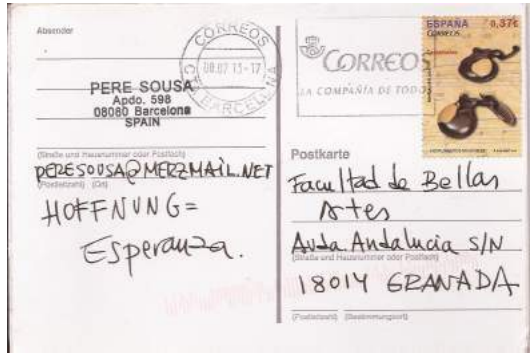 Absender
PERE SOUSA
Apdo. 598
08080 Barcelona
SPAIN
(Straße und Hausnummer oder Postfach)
PERESOUSA@MERZMAIL.NET
(Postleitzahl) (Ort)
HOFFNUNG=
Esperanza.
CORREOS
BARCELONA
CORREOS
LA COMPAÑÍA DE TODOS
ESPAÑA 0,37€
CORREOS
Postkarte
Facultad de Bellas
Artes
Avda. Andalucia S/N
(Straße und Hausnummer oder Postfach)
18014 GRANADA
(Postleitzahl) (Bestimmungsort)